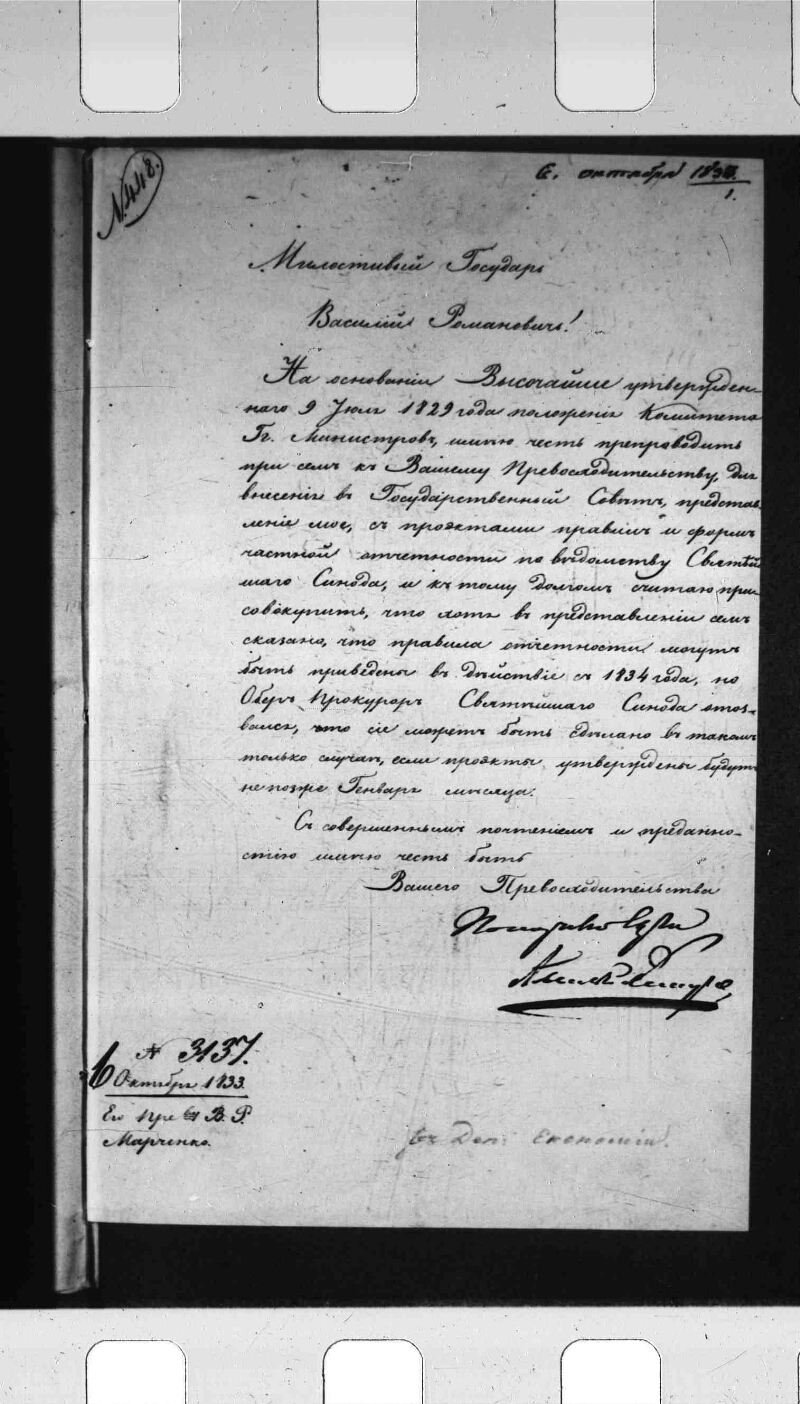 N. 448.
6. октября 1833.
1.
Милостивый Государь
Василій Романовичъ!
На основаніи Высочайше утвержден-
наго 9 Іюля 1829 года положенія Комитета
Гг. Министровъ, имѣю честь препроводить
при семъ къ Вашему Превосходительству, для
внесенія въ Государственный Совѣтъ, представ-
леніе мое, съ проэктами правилъ и формъ
частной отчетности по вѣдомству Святѣй
шаго Синода, и къ тому долгомъ считаю при-
совокупить, что хотя въ представленіи семъ
сказано, что правила отчетности могутъ
быть приведены въ дѣйствіе съ 1834 года, но
Оберъ Прокуроръ Святѣйшаго Синода отоз-
вался, что сіе можетъ быть сдѣлано въ такомъ
только случаѣ, если проэкты утверждены будутъ
не позже Генваря мѣсяца.
Съ совершеннымъ почтеніемъ и преданно-
стію имѣю честь быть
Вашего Превосходительства
N 3137.
6 Октября 1833.
Его Пре ву В. Р.
Марченко.
Въ Деп: Економіи.